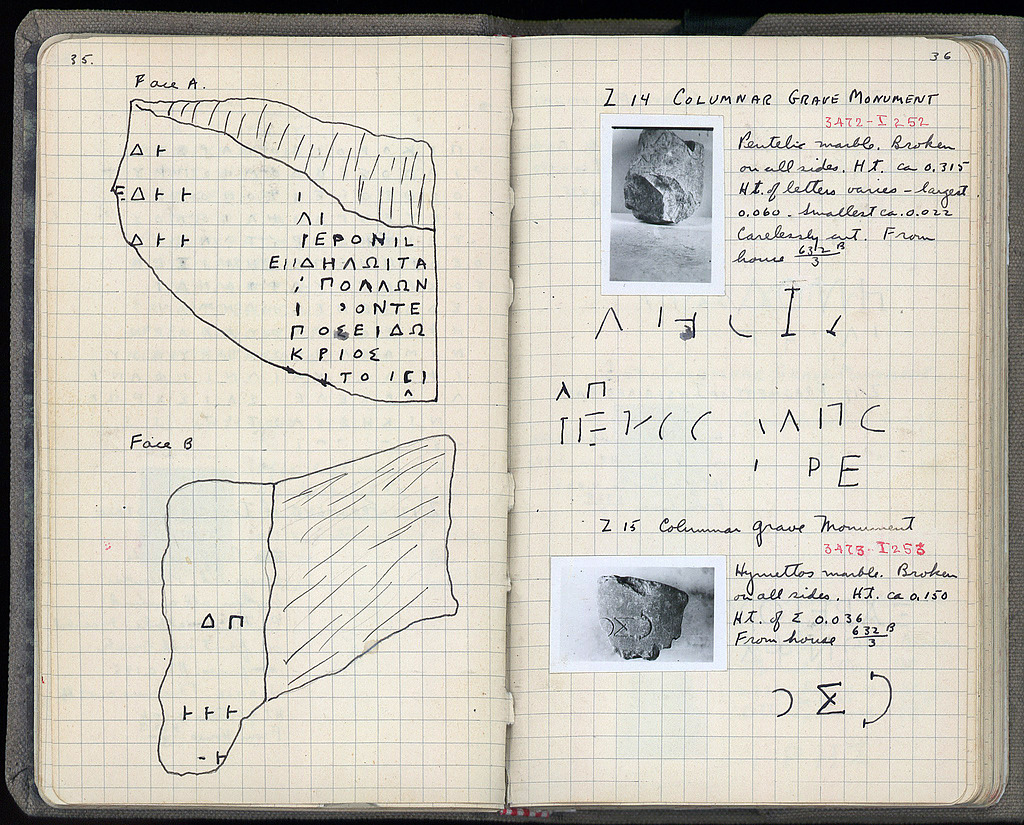 35.
Face A.
ΔͰ
Ε Δ Ͱ Ͱ
Ι
Λ Ι
Δ Ͱ Ͱ
Ι Ε Ρ Ο Ν Ι L
Ε Ι Ι Δ Η Λ Ω Ι Τ Α
Π Ο Λ Λ Ω Ν
Ι Ο Ν Τ Ε
Π Ο Σ Ε Ι Δ Ω
Κ Ρ Ι Ο Σ
Ι Τ Ο Ι
Λ
Face B
Δ Π
Ͱ Ͱ Ͱ
- Ͱ
36
Z 14 COLUMNAR GRAVE MONUMENT
3472-I 252
Pentelic marble. Broken
on all sides. Ht. ca 0.315
Ht. of letters varies – largest
0.060. Smallest ca. 0.022
Carelessly cut. From
house 632/3 B
Λ Ι
Λ Π
Ι Ι Ε
Ι Λ Π C
Ι Ρ Ε
Z 15 Columnar grave Monument
3473-I 253
Hymettos marble. Broken
on all sides. Ht. ca 0.150
Ht. of Σ 0.036
From house 632/3 B
Ͻ Σ Ͻ